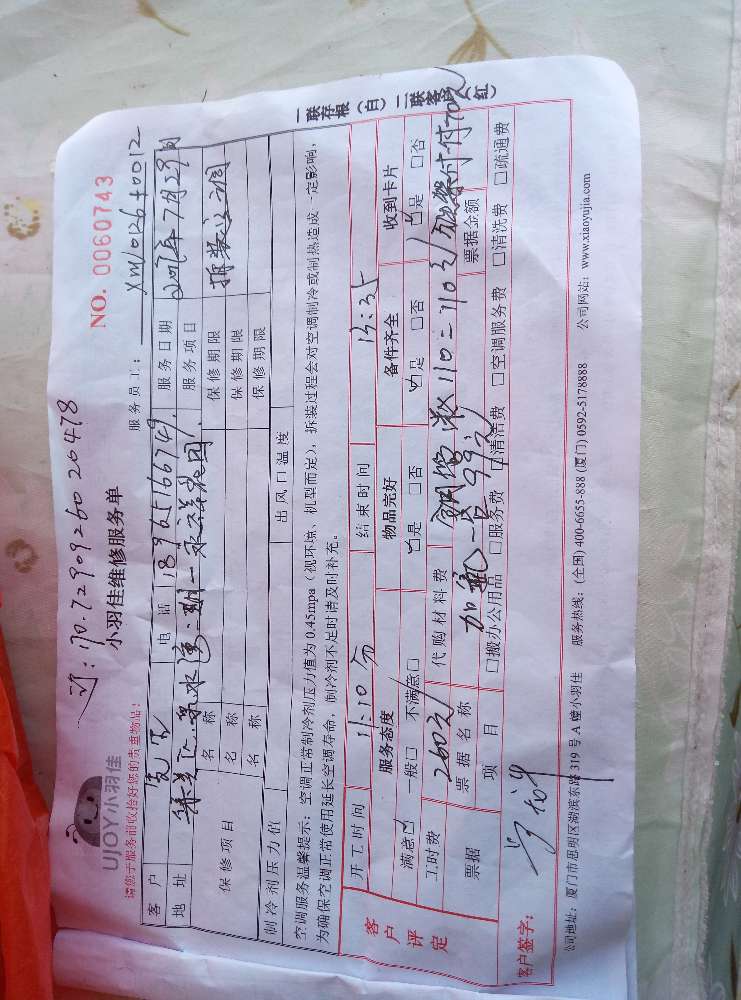 170.7290926026478
小羽佳维修服务单
NO. 0060743
UJOY小羽佳
请您于服务前收拾好您的贵重物品！
服务员工：
XM102640012
客户
电话 18965166749
服务日期 2017年7月29日
地址
服务项目 拆装空调
保修项目
名称 保修期限
名称 保修期限
名称 保修期限
制冷剂压力值
出风口温度
空调服务温馨提示：空调正常制冷剂压力值为0.45mpa（视环境、机型而定），拆装过程会对空调制冷或制热造成一定影响，
为确保空调正常使用延长空调寿命，制冷剂不足时请及时补充。
客户评定
开工时间 11:10分 结束时间 13:35
服务态度 物品完好 备件齐全 收到卡片
满意☑ 一般□ 不满意□ ☑是 □否 ☑是 □否 ☑是 □否
工时费 260元 代购材料费 铜管 110=110元
票据 票据名称 加氟一 99元 票据金额
项目 □搬办公用品 □服务费 □清洁费 □空调服务费 □清洗费 □疏通费
客户签字：
公司地址：厦门市思明区湖滨东路319号A幢小羽佳 服务热线：(全国) 400-6655-888 (厦门) 0592-5178888 公司网站：www.xiaoyujia.com
一联存根（白） 二联客户（红）